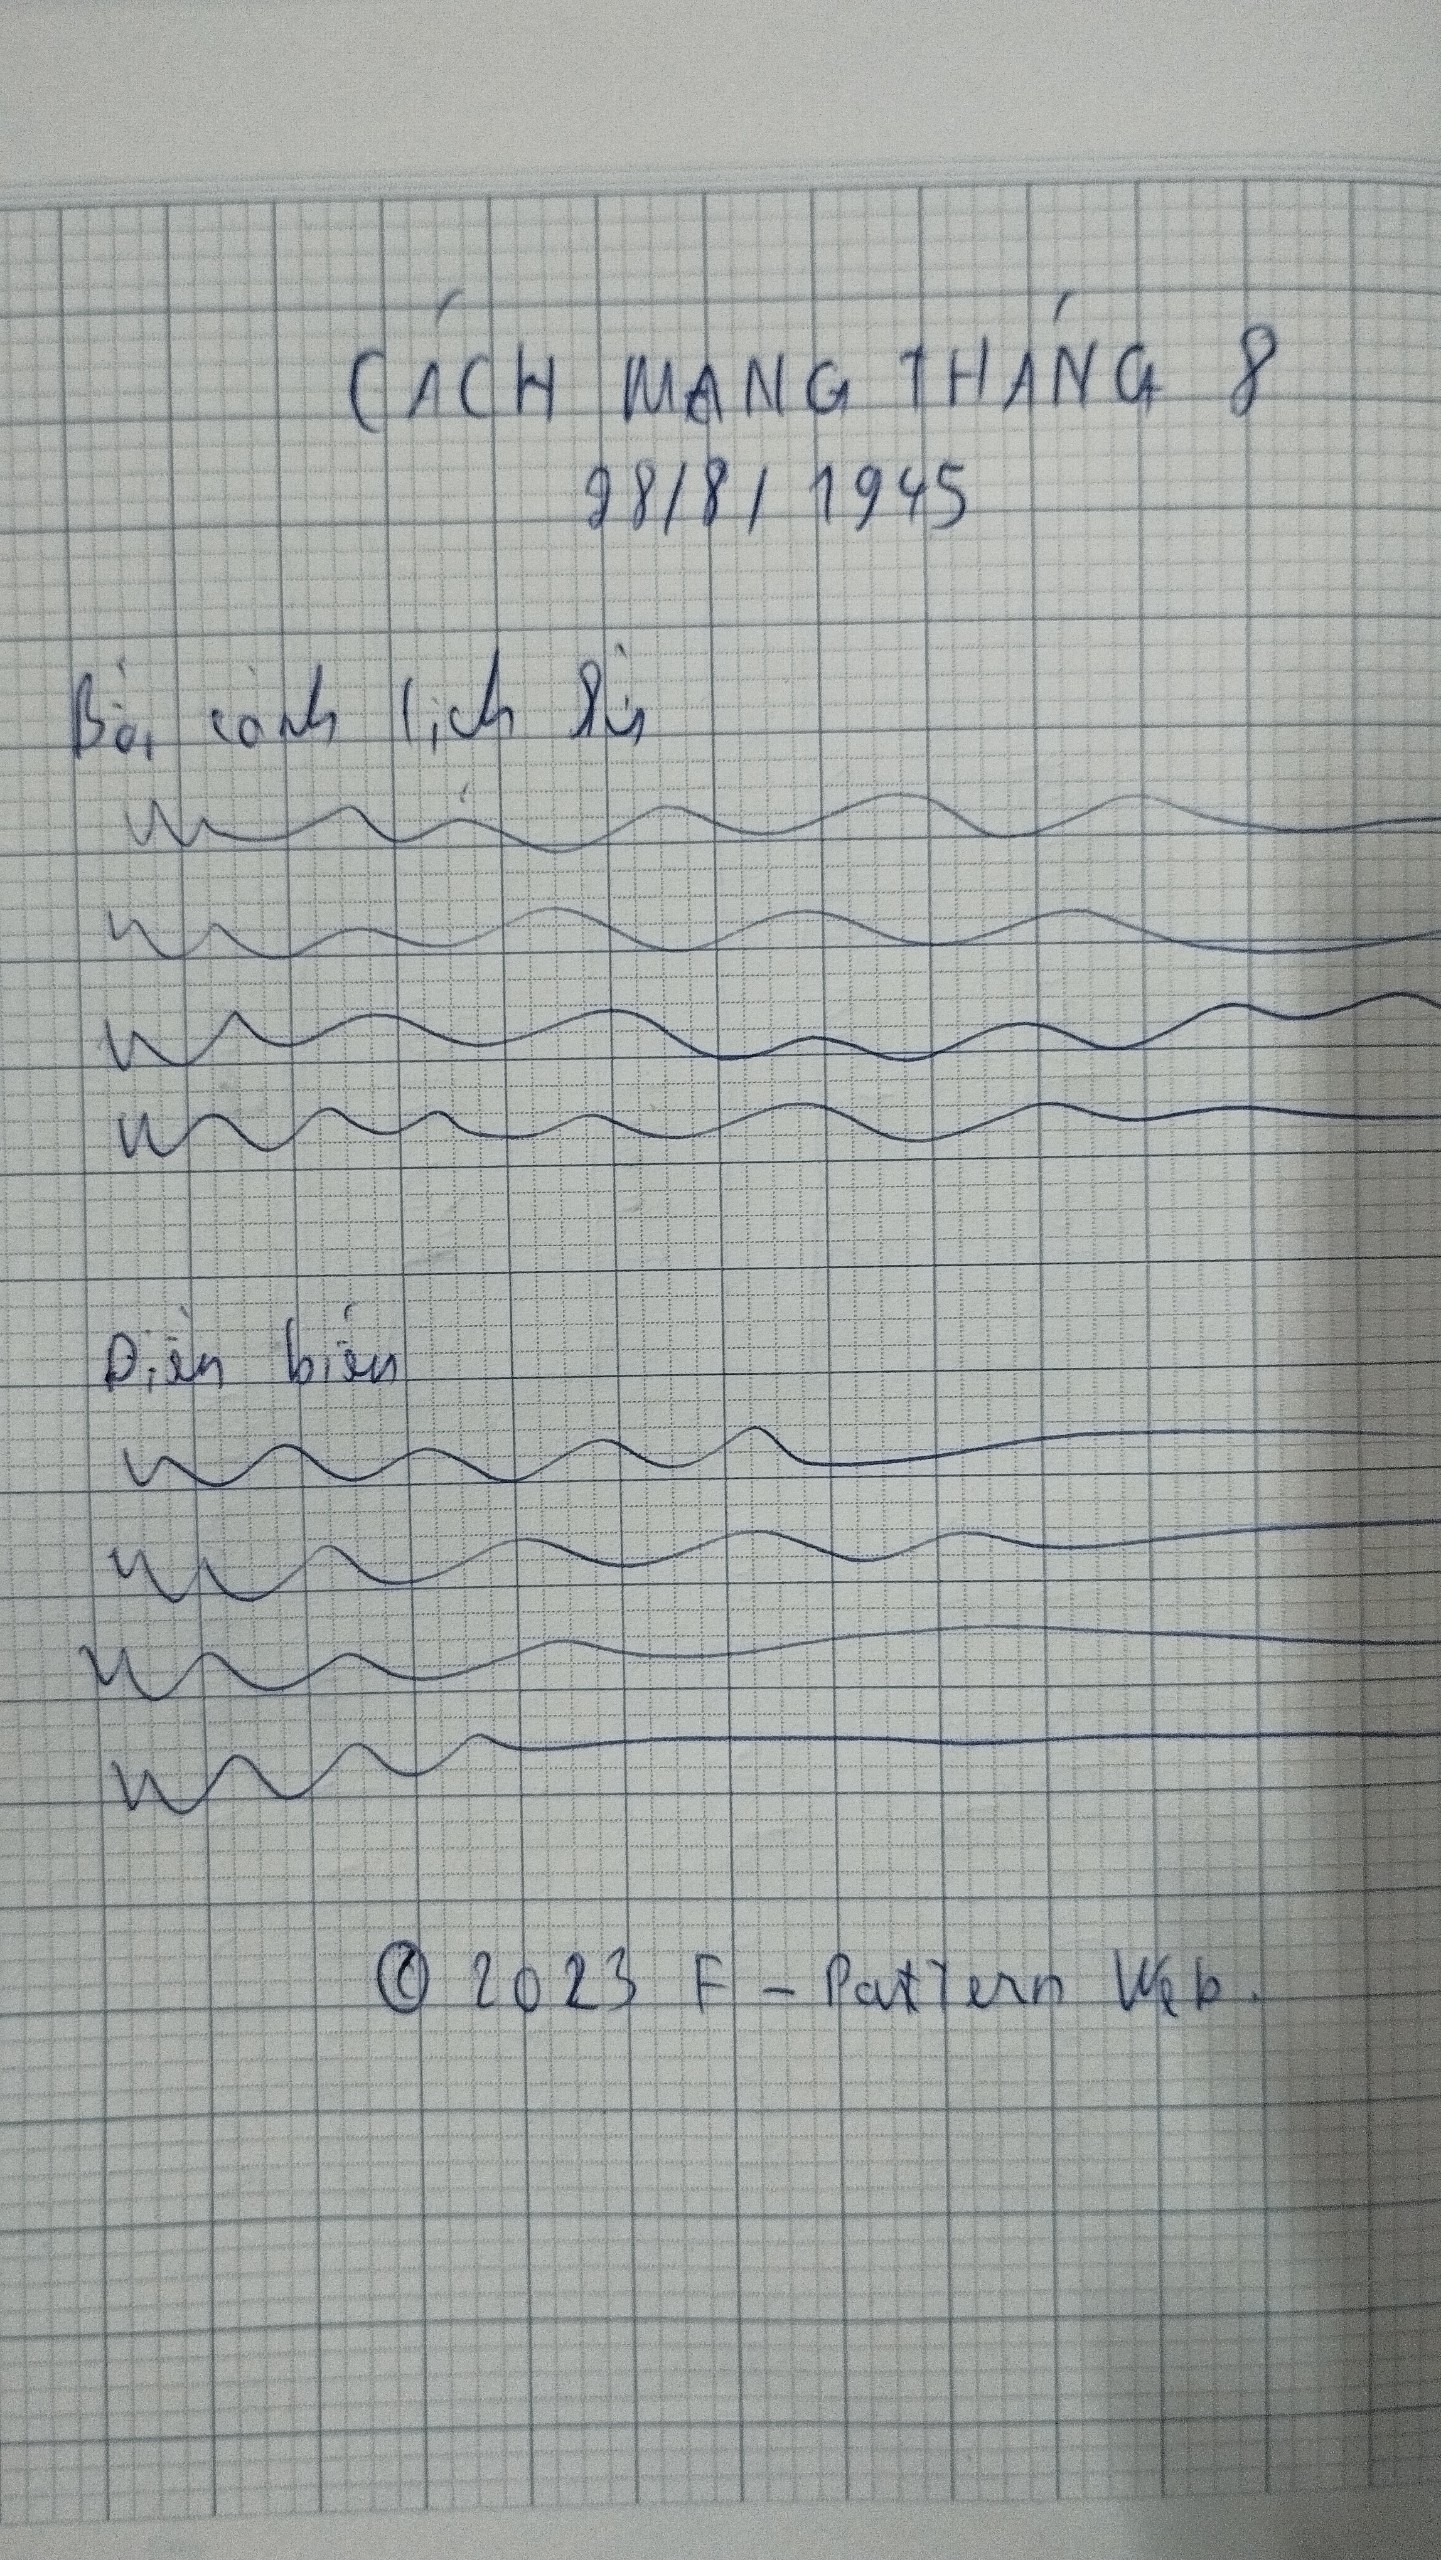 CÁCH MẠNG THÁNG 8
28/8/1945
Bối cảnh lịch sử
Diễn biến
© 2023 F-Pattern Web.